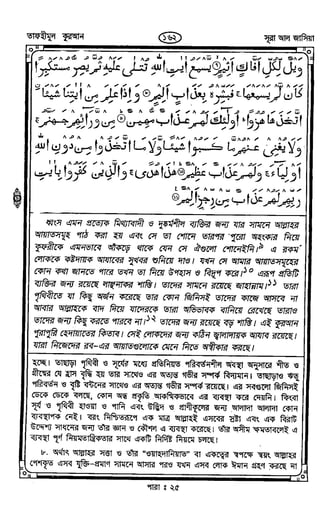 তাফহীমুল কুরআন
১৬২
সূরা আল জাসিয়া
وَيْلٌ لِّكُلِّ أَفَّاكٍ أَثِيمٍ ۝ يَسْمَعُ آيٰتِ اللَّهِ تُتْلَىٰ عَلَيْهِ ثُمَّ يُصِرُّ مُسْتَكْبِرًا
كَأَن لَّمْ يَسْمَعْهَا ۚ فَبَشِّرْهُ بِعَذَابٍ أَلِيمٍ ۝ وَإِذَا عَلِمَ مِنْ آيٰتِنَا شَيْئًا
اتَّخَذَهَا هُزُوًا ۚ أُولٰئِكَ لَهُمْ عَذَابٌ مُّهِينٌ ۝ مِن وَرَائِهِمْ جَهَنَّمُ ۚ
وَلَا يُغْنِي عَنْهُم مَّا كَسَبُوا شَيْئًا وَلَا مَا اتَّخَذُوا مِن دُونِ اللَّهِ
أَوْلِيَاءَ ۚ وَلَهُمْ عَذَابٌ عَظِيمٌ ۝ هٰذَا هُدًى ۚ وَالَّذِينَ كَفَرُوا بِآيٰتِ
رَبِّهِمْ لَهُمْ عَذَابٌ مِّن رِّجْزٍ أَلِيمٌ ۝
ধ্বংস এমন প্রত্যেক মিথ্যাবাদী ও দুষ্কর্মশীল ব্যক্তির জন্য যার সামনে আল্লাহর
আয়াতসমূহ পাঠ করা হয় এবং সে তা শোনে তারপর পুরো অহংকার নিয়ে
কুফরীকে এমনভাবে আঁকড়ে থাকে যেন সে ঐগুলো শোনেইনি।৯ এ রকম
লোককে কষ্টদায়ক আযাবের সুখবর শুনিয়ে দাও। যখন সে আমার আয়াতসমূহের
কোন কথা জানতে পারে তখন তা নিয়ে উপহাস ও বিদ্রূপ করে।১০ এরূপ প্রতিটি
ব্যক্তির জন্য রয়েছে লাঞ্ছনাকর শাস্তি। তাদের সামনে রয়েছে জাহান্নাম।১১ তারা
পৃথিবীতে যা কিছু অর্জন করেছে তার কোন জিনিসই তাদের কাজে আসবে না
আবার আল্লাহকে বাদ দিয়ে যাদেরকে তারা অভিভাবক বানিয়ে রেখেছে তারাও
তাদের জন্য কিছু করতে পারবে না।১২ তাদের জন্য রয়েছে বড় শাস্তি। এই কুরআন
পুরাপুরি হেদায়াতের কিতাব। সেই লোকদের জন্য কঠিন জ্বালাদায়ক আযাব রয়েছে।
যারা নিজেদের রব-এর আয়াতগুলোকে মেনে নিতে অস্বীকার করছে।
হচ্ছে। তাছাড়া পৃথিবী ও সূর্যের মধ্যে প্রতিনিয়ত পরিবর্তনশীল অবস্থা অনুসারে শীত ও
গ্রীষ্মের যে হ্রাস বৃদ্ধি হয় তার সাথেও এর অত্যন্ত গভীর সম্পর্ক বিদ্যমান। তাছাড়াও ঋতু
পরিবর্তন ও বৃষ্টি বর্ষণের সাথেও এর অত্যন্ত গভীর সম্পর্ক রয়েছে। এর সবগুলো জিনিসই
ডেকে ডেকে বলছে, কোন অন্ধ প্রকৃতি আকস্মিকভাবে এর ব্যবস্থা করে দেয়নি। কিংবা
সূর্য ও পৃথিবী হাওয়া ও পানি এবং উদ্ভিদ ও প্রাণীকুলের জন্য আলাদা আলাদা কোন
ব্যবস্থাপক নেই। বরং নিশ্চিতরূপে এক মাত্র আল্লাহই এসবের স্রষ্টা এবং এক বিরাট
উদ্দেশ্য সাধনের জন্য তাঁর জ্ঞান ও কৌশল এ ব্যবস্থা করেছে। তাঁর অসীম ক্ষমতাবলেই এ
ব্যবস্থা পূর্ণ নিয়মতান্ত্রিকতার সাথে একটি নির্দিষ্ট নিয়মে চলছে।
৮. অর্থাৎ আল্লাহর সত্তা ও তাঁর "ওয়াহদানিয়াত" বা একত্বের স্বপক্ষে স্বয়ং আল্লাহর
পেশকৃত এসব যুক্তি-প্রমাণ সামনে আসার পরও যখন এসব লোক ঈমান গ্রহণ করছে না
পারা : ২৫